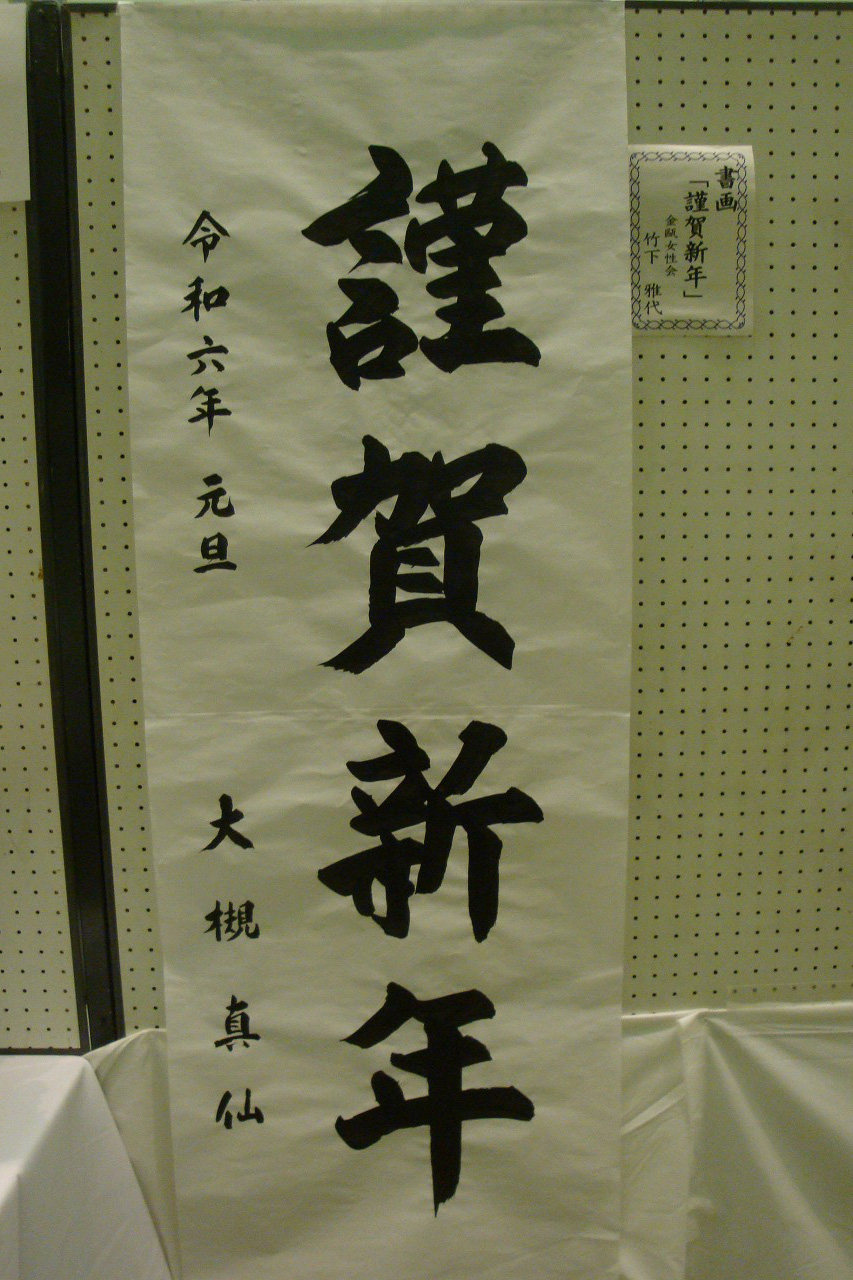 謹賀新年
令和六年 元旦
大槻真仙
書画
「謹賀新年」
金瓯女性会
竹下 雅代